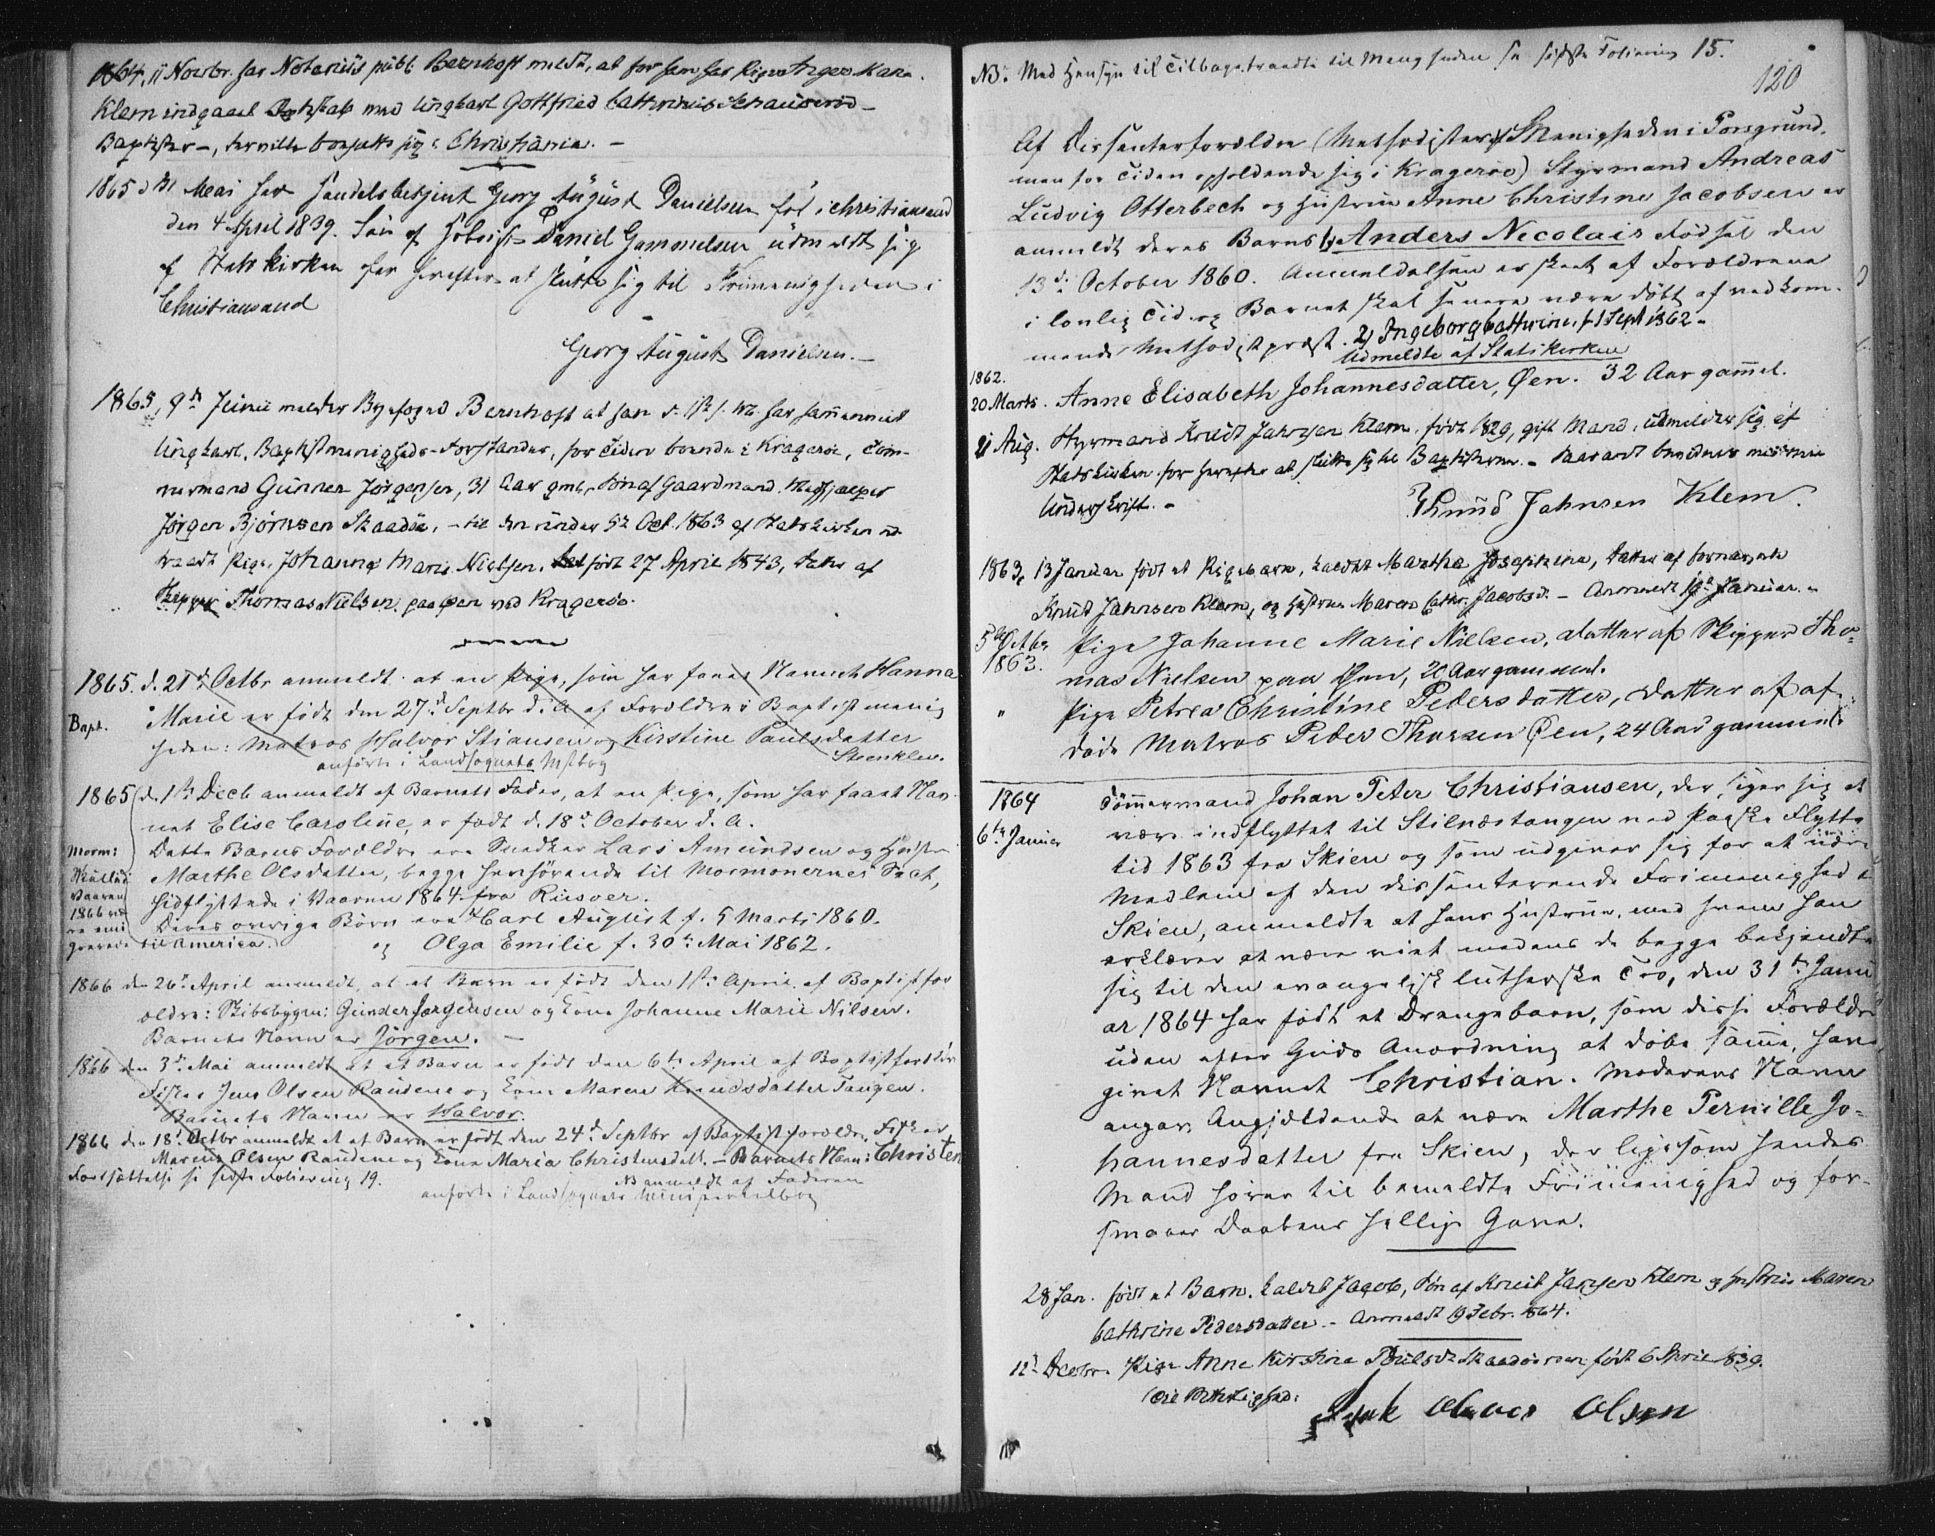 1864, 11 Novbr. har Notarius publ. Bernhoft meldt, at for ham har Pigen Inger Marie
Klem indgaaet Ægteskab med Ungkarl Gottfried Cathrinus
Baptister –, herville bosatte sig i Christiania. –
1865 d 31 Mai har Handelsbetjent Georg August Danielsen født i Christiansand
den 4 April 1839. Søn af Daniel Gammelsen udmeldt sig
af Statskirken for herefter at slutte sig til Frimenigheden i
Christiansand
Georg August Danielsen. –
1865, 9de Junii melder Byfogd Bernhoft at han har sammenviet
Ungkarl, Baptistmenigheds-Forstander, for Tiden boende i Kragerøe, Tøm-
mermand Gunner Jørgensen, 31 Aar gml., Søn af Gaardmand
Jørgen Bjørnsen Skaadøe, – til den under 5te Oct. 1863 af Statskirken ud-
traadte Pige, Johanne Marie Nielsen, født 27 April 1843, Datter af
Skipper Thomas Nielsen paa Øen ved Kragerøe.
1865. d. 21d. Octbr anmeldt at en Pige, som har faaet Navnet Hanna
Bapt. Marie er født den 27d Septbr d. A. af Forældre i Baptistmenig
heden: Matros Halvor Stiansen og Kirstine Paulsdatter
Stenklev.
anførte i Landsognets Mstbog
1865 d. 1ste Decb anmeldt af Barnets Fader, at en Pige, som har faaet Nav-
net Elise Caroline, er født d. 18d October d. A.
Morm: Dette Barns Forældre ere Snedker Lars Amundsen og Hustru
Marthe Olsdatter, begge henhørende til Mormonernes Sect,
Vaaren hidflyttede i Vaaren 1864 fra Riisøer.
1866 Deres øvrige Børn ere Carl August f. 5 Marts 1860.
til America. og Olga Emilie f. 30te Mai 1862.
1866 den 26d April anmeldt, at et Barn er født den 1ste April af Baptistfor
ældre: Skibsbygger Gunder Jørgensen og Kone Johanne Marie Nilsen.
Barnets Navn er Jörgen. –
1866 den 3d Mai anmeldt at et Barn er født den 6te April af Baptistforældre
Fisker Jens Olsen Raudene og Kone Maren Knudsdatter Tangen.
Barnets Navn er Halvor.
1866 den 18d Octbr anmeldt at et Barn er født den 24d Septbr af Baptistforældre, Fisker
Marcus Olsen Raudene og Kone Maria Christensdatt. – Barnets Navn: Christen
Fortsættelse se sidste Foliering 19. NB anmeldt af Faderen
anførte i Landsognets Ministerialbog
NB. Med Hensyn til Tilbagetraadte til Menigheden se sidste Foliering 15.
120
Af Dissenterforældre (Methodister af Menigheden i Porsgrund,
men for Tiden opholdende sig i Kragerøe) Styrmand Andreas
Ludvig Otterbech og Hustru Anne Christine Jacobsen er
anmeldt deres Barns 1) Anders Nicolais Fødsel den
13de October 1860. Anmeldelsen er skeet af Forældrene
i lovlig Tid og Barnet skal senere være døbt af vedkom-
mende Methodistpræst. 2) Ingeborg Cathrine, f. 1 Sept 1862 –
Udmeldte af Statskirken
1862.
20 Marts. Anne Elisabeth Johannesdatter, Øen. 32 Aar gammel.
21 Aug. Styrmand Knud Jahnsen Klem, født 1829, gift Mand, udmelder sig af
Statskirken for herefter at slutte sig til Baptisterne. –
Underskrift. –
Knud Jahnsen Klem.
1863, 13 Januar født et Pigebarn, kaldet Marthe Josephine, Datter af fornævnte
Knud Jahnsen Klem, og Hustru Maren Cathr. Jacobsd. – Anmeldt 19d Januar. –
5te Octbr Pige Johanne Marie Nielsen, Datter af Skipper Tho-
1863. mas Nielsen paa Øen, 20 Aar gammel.
" Pige Petrea Christine Pedersdatter, Datter af af-
døde Matros Peder Thorsen Øen, 24 Aar gammel
1864 Tømmermand Johan Peter Christiansen, der siger sig at
6te Januar være indflyttet til Stilnæstangen ved Paaske Flytte
tid 1863 fra Skien og som udgiver sig for at være
Medlem af den dissenterende Frimenighed i
Skien, anmeldte at hans Hustrue, med hvem han
erklærer at være viet medens de begge bekjendte
sig til den evangelisk lutherske Tro, den 31te Janu
ar 1864 har født et Drengebarn, som disse Forældre
uden efter Guds Anordning at døbe samme, have
givet Navnet Christian. Moderens Navn
angav Angjældende at være Marthe Pernille Jo-
hannesdatter fra Skien, der ligesom hendes
Mand hører til bemeldte Frimenighed og for-
smaaer Daabens hellige Gave.
28 Jan. født et Barn, kaldet Jacob, Søn af Knud Jansen Klem og Hustrue Maren
Cathrine Pedersdatter – Anmeldt 19 Febr. 1864.
12d Decbr. Pige Anne Kirstine født 6 April 1839.
Olsen